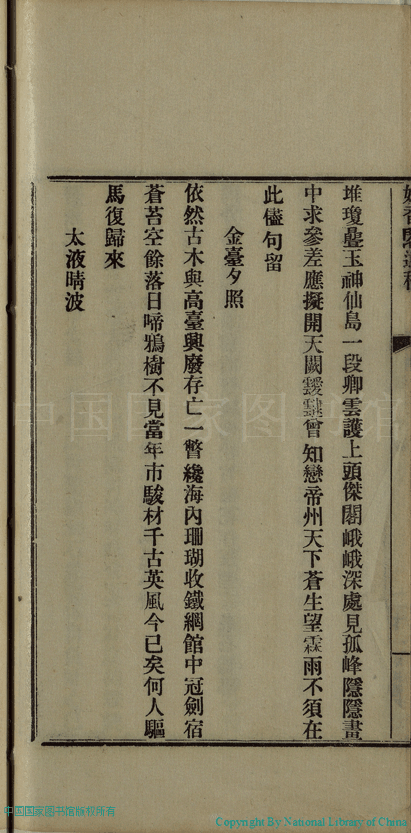 堆瓊壘玉神仙島一段卿雲護上頭傑閣峨峨深處見孤峰隱隱畫
中求參差應擬開天闕靉靆曾知戀帝州天下蒼生望霖雨不須在
此儘句留
金臺夕照
依然古木與高臺興廢存亡一瞥纔海內珊瑚收鐵網館中冠劍宿
蒼苔空餘落日啼鴉樹不見當年市駿材千古英風今已矣何人驅
馬復歸來
太液晴波
中国国家图书馆
中国国家图书馆版权所有
Copyright By National Library of China